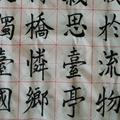 於流物
思臺亭
橋憐鄉
臺國